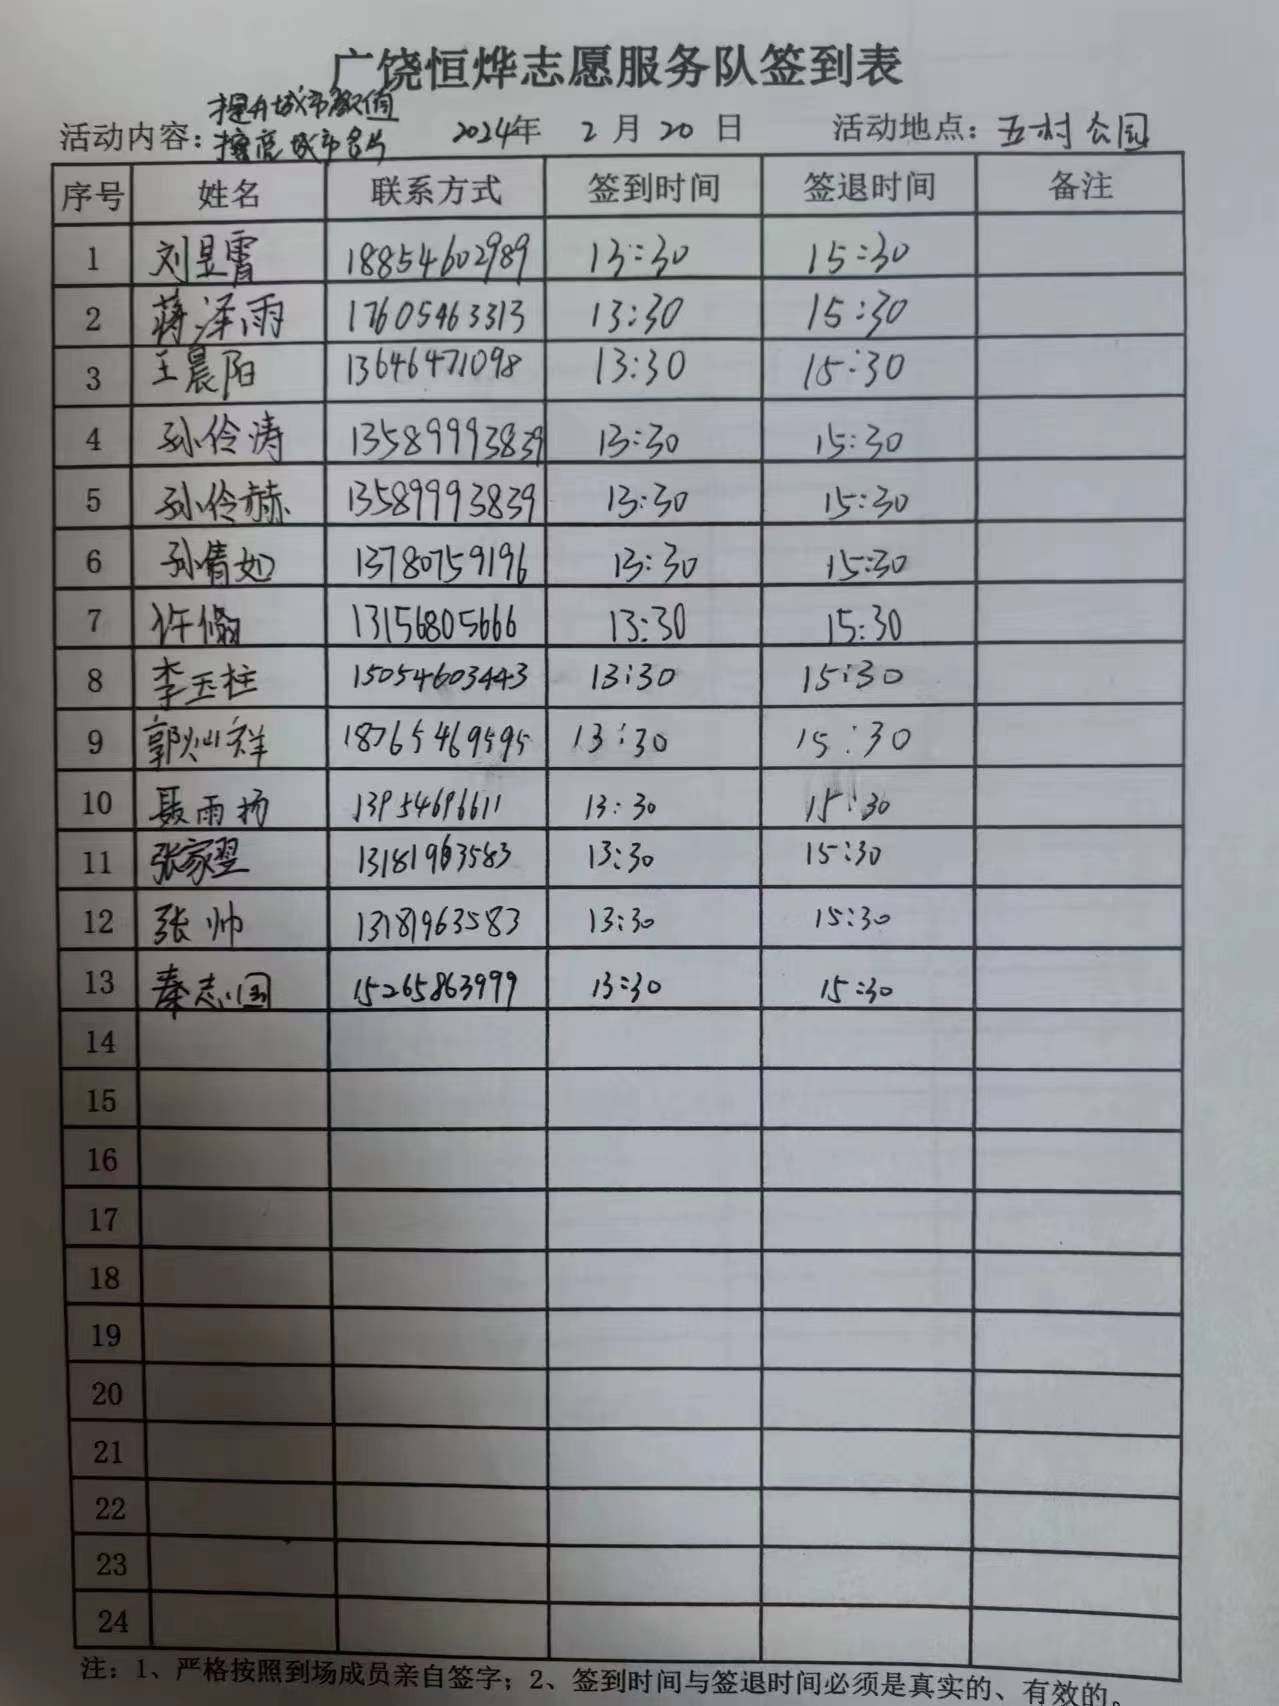 广饶恒烨志愿服务队签到表
提升城市颜值
活动内容：擦亮城市名片 2024年 2月20日 活动地点：五村公园
序号 姓名 联系方式 签到时间 签退时间 备注
1 刘昱霄 18854602989 13:30 15:30
2 蒋泽雨 17605463313 13:30 15:30
3 王晨阳 13646471098 13:30 15:30
4 孙伶涛 13589993839 13:30 15:30
5 孙伶赫 13589993839 13:30 15:30
6 孙倩如 13780759196 13:30 15:30
7 许翛 13156805666 13:30 15:30
8 李玉柱 15054603443 13:30 15:30
9 郭灿祥 18765469595 13:30 15:30
10 聂雨扬 13954696611 13:30 15:30
11 张家翌 13181963583 13:30 15:30
12 张帅 13181963583 13:30 15:30
13 秦志国 15265863999 13:30 15:30
14
15
16
17
18
19
20
21
22
23
24
注：1、严格按照到场成员亲自签字；2、签到时间与签退时间必须是真实的、有效的。